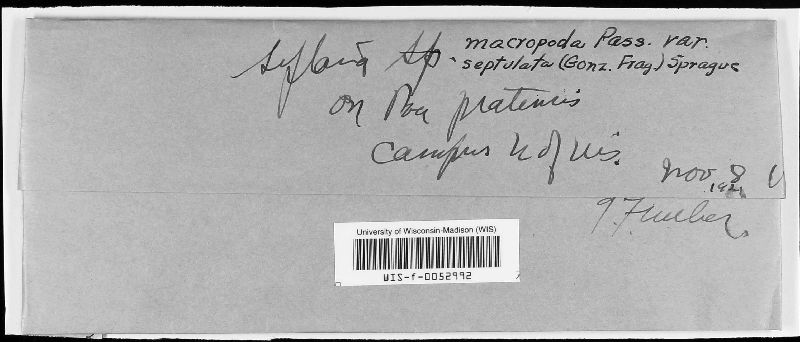 Septoria sp. macropoda Pass. var.
septulata (Gonz. Frag.) Sprague
on Poa pratensis
Campus U of Wis.
Nov 8
192
University of Wisconsin-Madison (WIS)
WIS-f-0052992